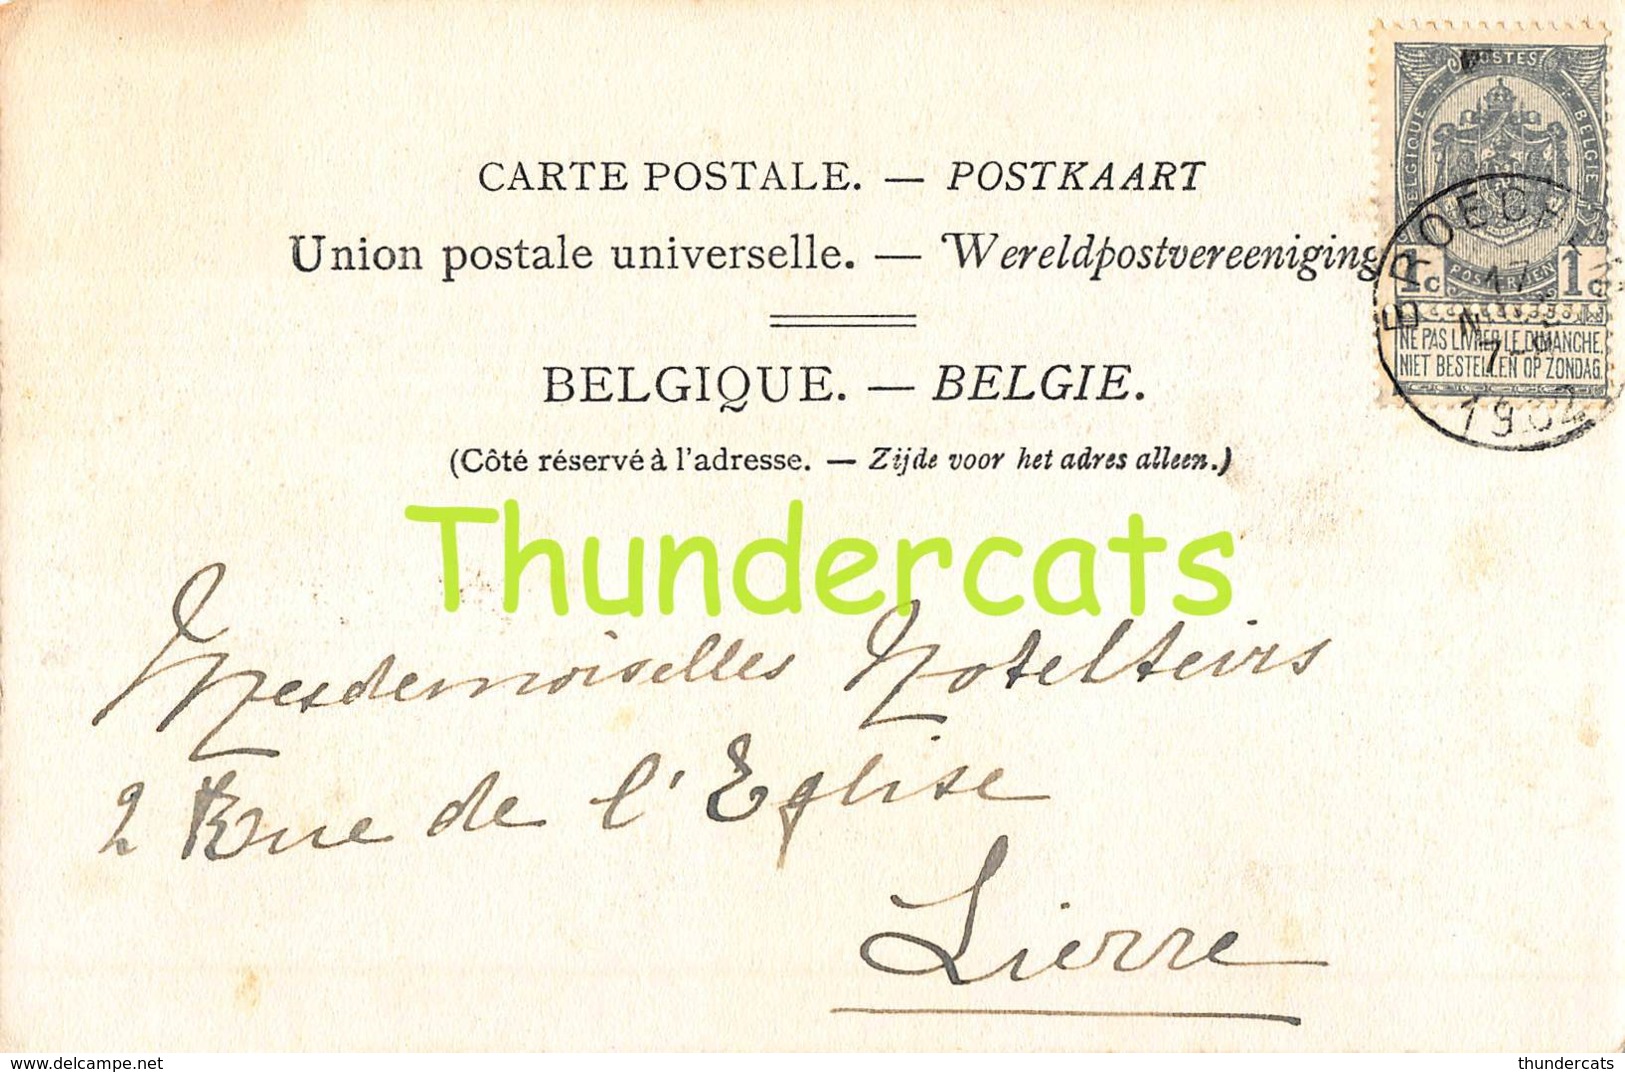 CARTE POSTALE. — POSTKAART
Union postale universelle. — Wereldpostvereeniging
BELGIQUE. — BELGIE.
(Côté réservé à l'adresse. — Zijde voor het adres alleen.)
POSTES
BELGIQUE BELGIE
POSTERIJEN
1c 1c
NE PAS LIVRER LE DIMANCHE.
NIET BESTELLEN OP ZONDAG.
17
1902
Thundercats
Mesdemoiselles Notelteirs
2 Rue de l'Eglise
Lierre
www.delcampe.net
thundercats